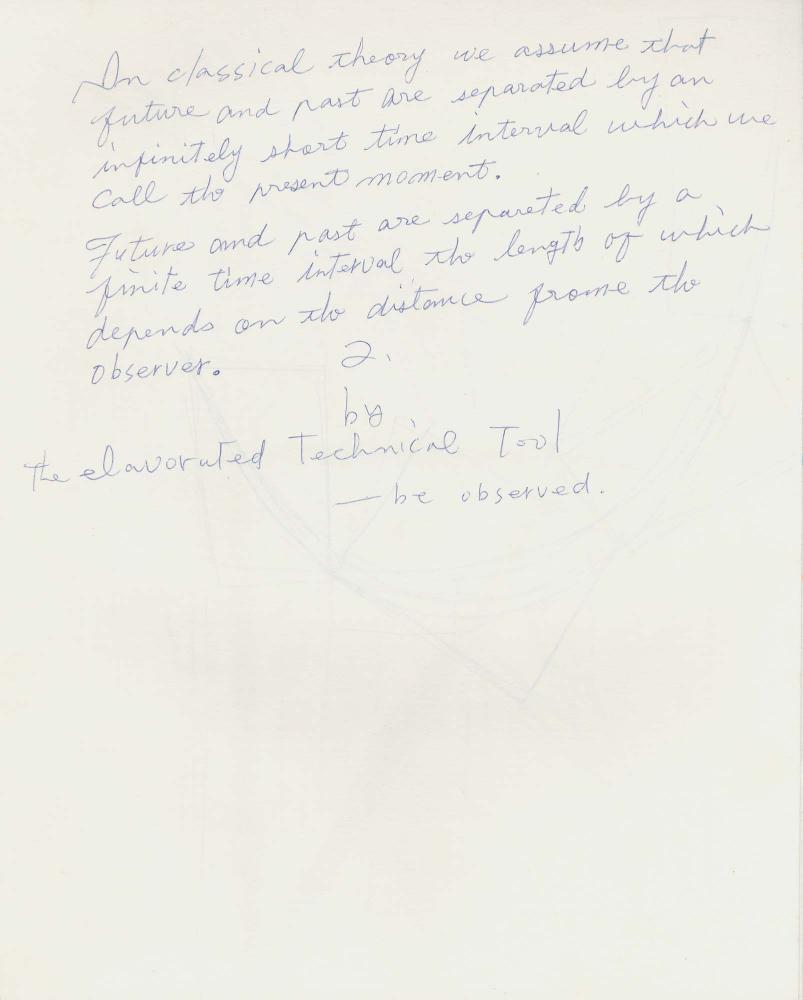 In classical theory we assume that
future and past are separated by an
infinitely short time interval which we
Call the present moment.
Future and past are separeted by a
finite time interval the length of which
depends on the distance frome the
observer.
2.
by
The elavorated Technical Tool
— be observed.